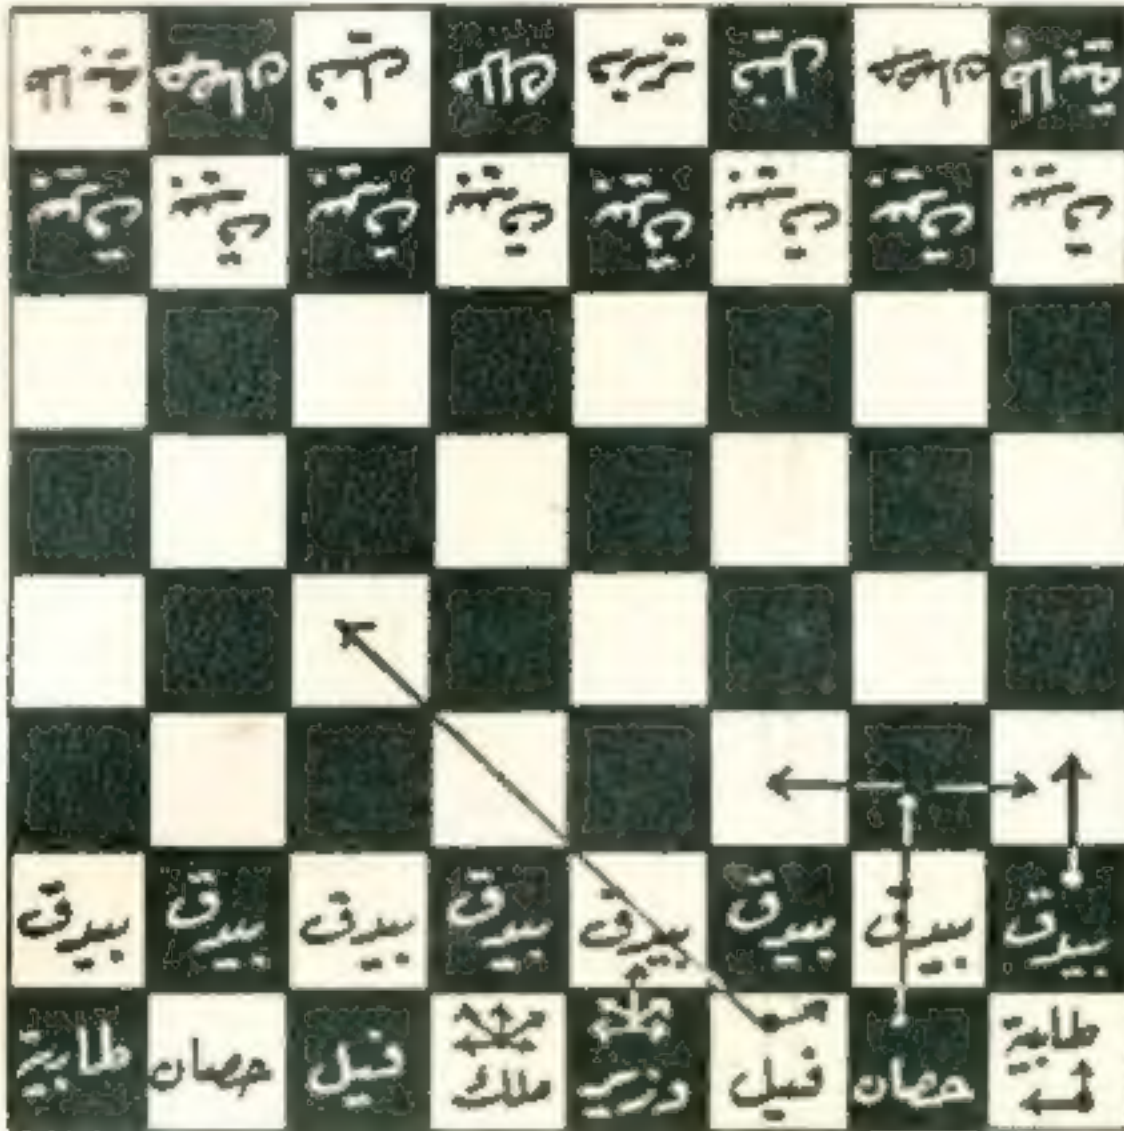 طابية حصان فيل وزير ملك فيل حصان طابية
بيدق بيدق بيدق بيدق بيدق بيدق بيدق بيدق
بيدق بيدق بيدق بيدق بيدق بيدق بيدق بيدق
طابية حصان فيل وزير ملك فيل حصان طابية